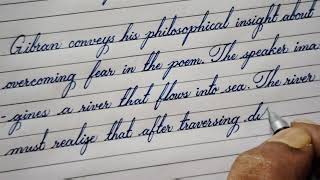 Gibran conveys his philosophical insight about
overcoming fear in the poem. The speaker ima
- gines a river that flows into sea. The river
must realise that after traversing di